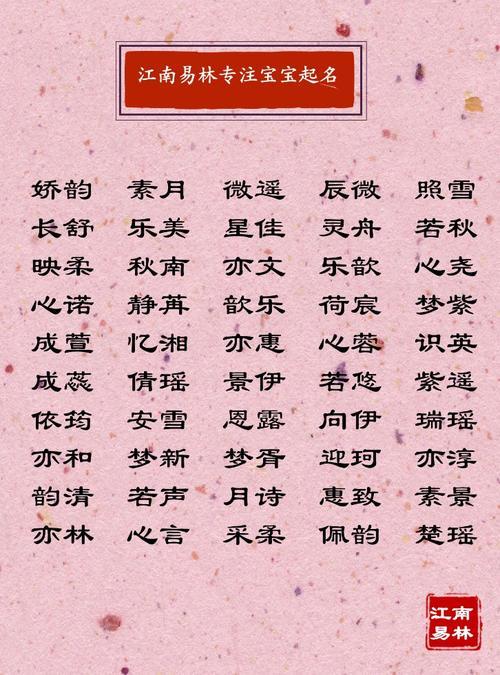 江南易林专注宝宝起名
娇韵 素月 微遥 辰微 照雪
长舒 乐美 星佳 灵舟 若秋
映柔 秋南 亦文 乐歆 心尧
心诺 静苒 歆乐 荷宸 梦紫
成萱 忆湘 亦惠 心蓉 识英
成蕊 倩瑶 景伊 若悠 紫遥
依筠 安雪 恩露 向伊 瑞瑶
亦和 梦新 梦胥 迎珂 亦淳
韵清 若声 月诗 惠致 素景
亦林 心言 采柔 佩韵 楚瑶
江南
易林